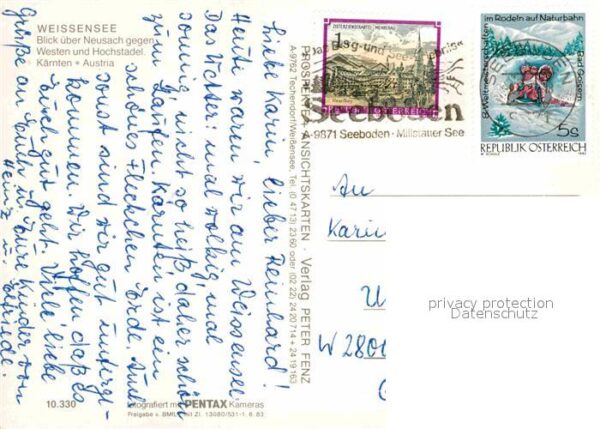 WEISSENSEE
Blick über Neusach gegen
Westen und Hochstadel.
Kärnten • Austria
Liebe Karin, lieber Reinhard!
Heute waren wir am Weissensee.
Das Wetter: mal wolkig, mal
sonnig, nicht so heiß, daher schön
zum Laufen. Kärnten ist ein
schönes Fleckchen Erde. Auch
sonst sind wir gut unterge-
kommen. Wir hoffen, daß es
Euch gut geht. Viele liebe
Grüße an Euch u. Eure Kinder von
Heinz u. Elfriede.
10.330
Fotografiert mit PENTAX Kameras
Freigabe v. BMfLV mit Zl. 13080/531-1.6.83
PROSPEKTE • ANSICHTSKARTEN • Verlag PETER FENZ
A-9762 Techendorf/Weißensee, Tel. (0 47 13) 23 60 oder (02 22) 24 20 714 + 24 19 163
ZISTERZIENSERABTEI MEHRERAU
1
REPUBLIK ÖSTERREICH
Seeboden
A-9871 Seeboden • Millstätter See
8. Weltmeisterschaften im Rodeln auf Naturbahn
Bad Goisern
5s
REPUBLIK ÖSTERREICH
An
Karin
W 2801
privacy protection
Datenschutz